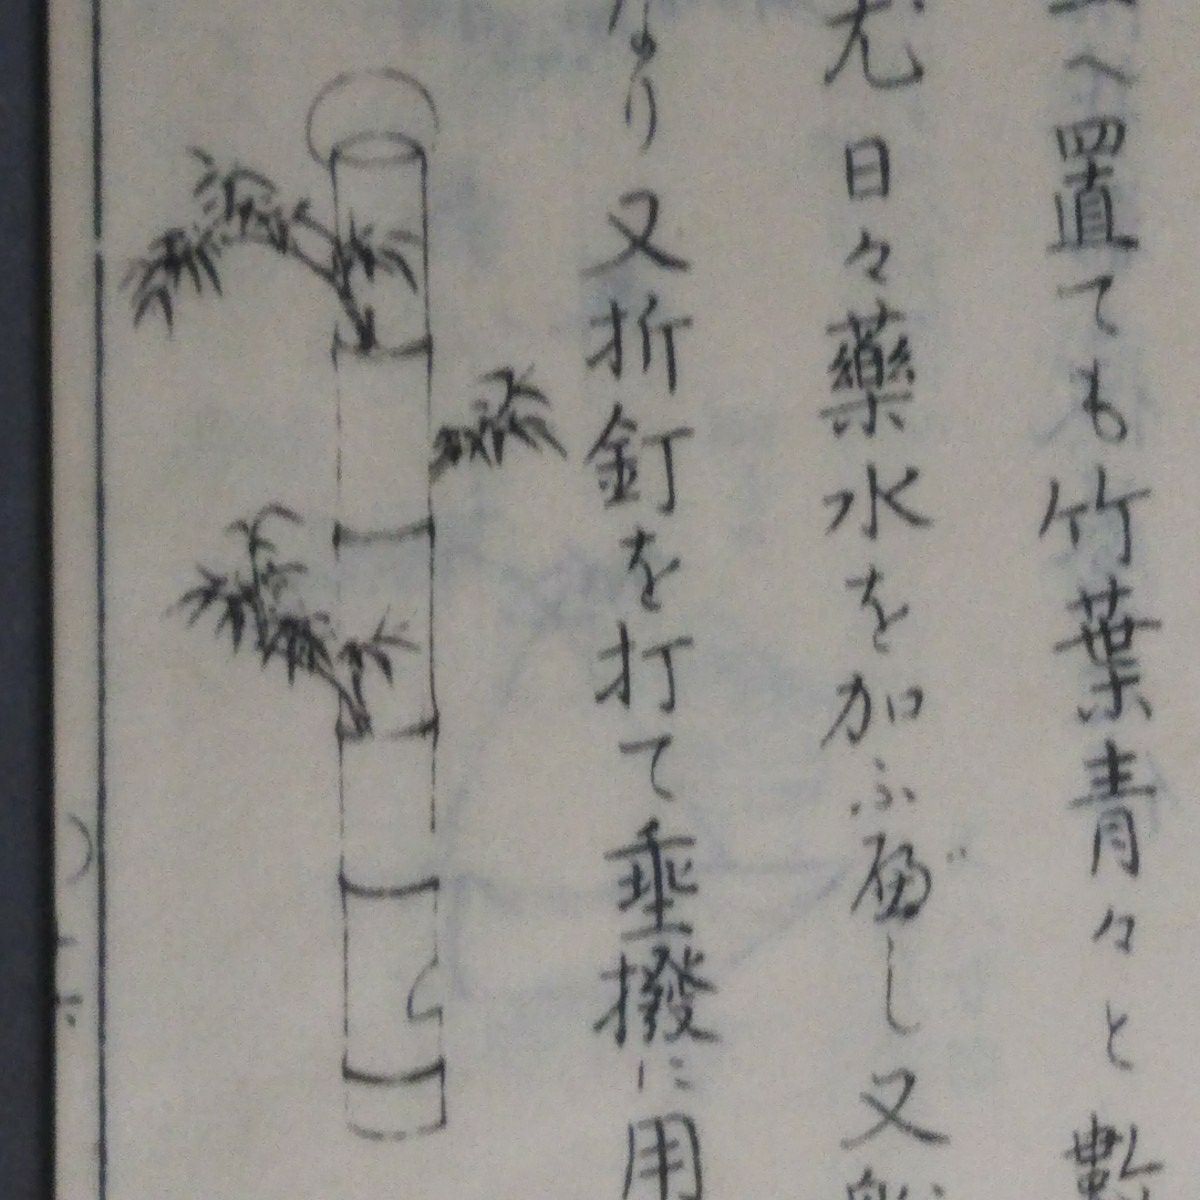 へ置ても竹葉青々と數
尤日々藥水を加ふべし又
なり又折釘を打て垂撥に用